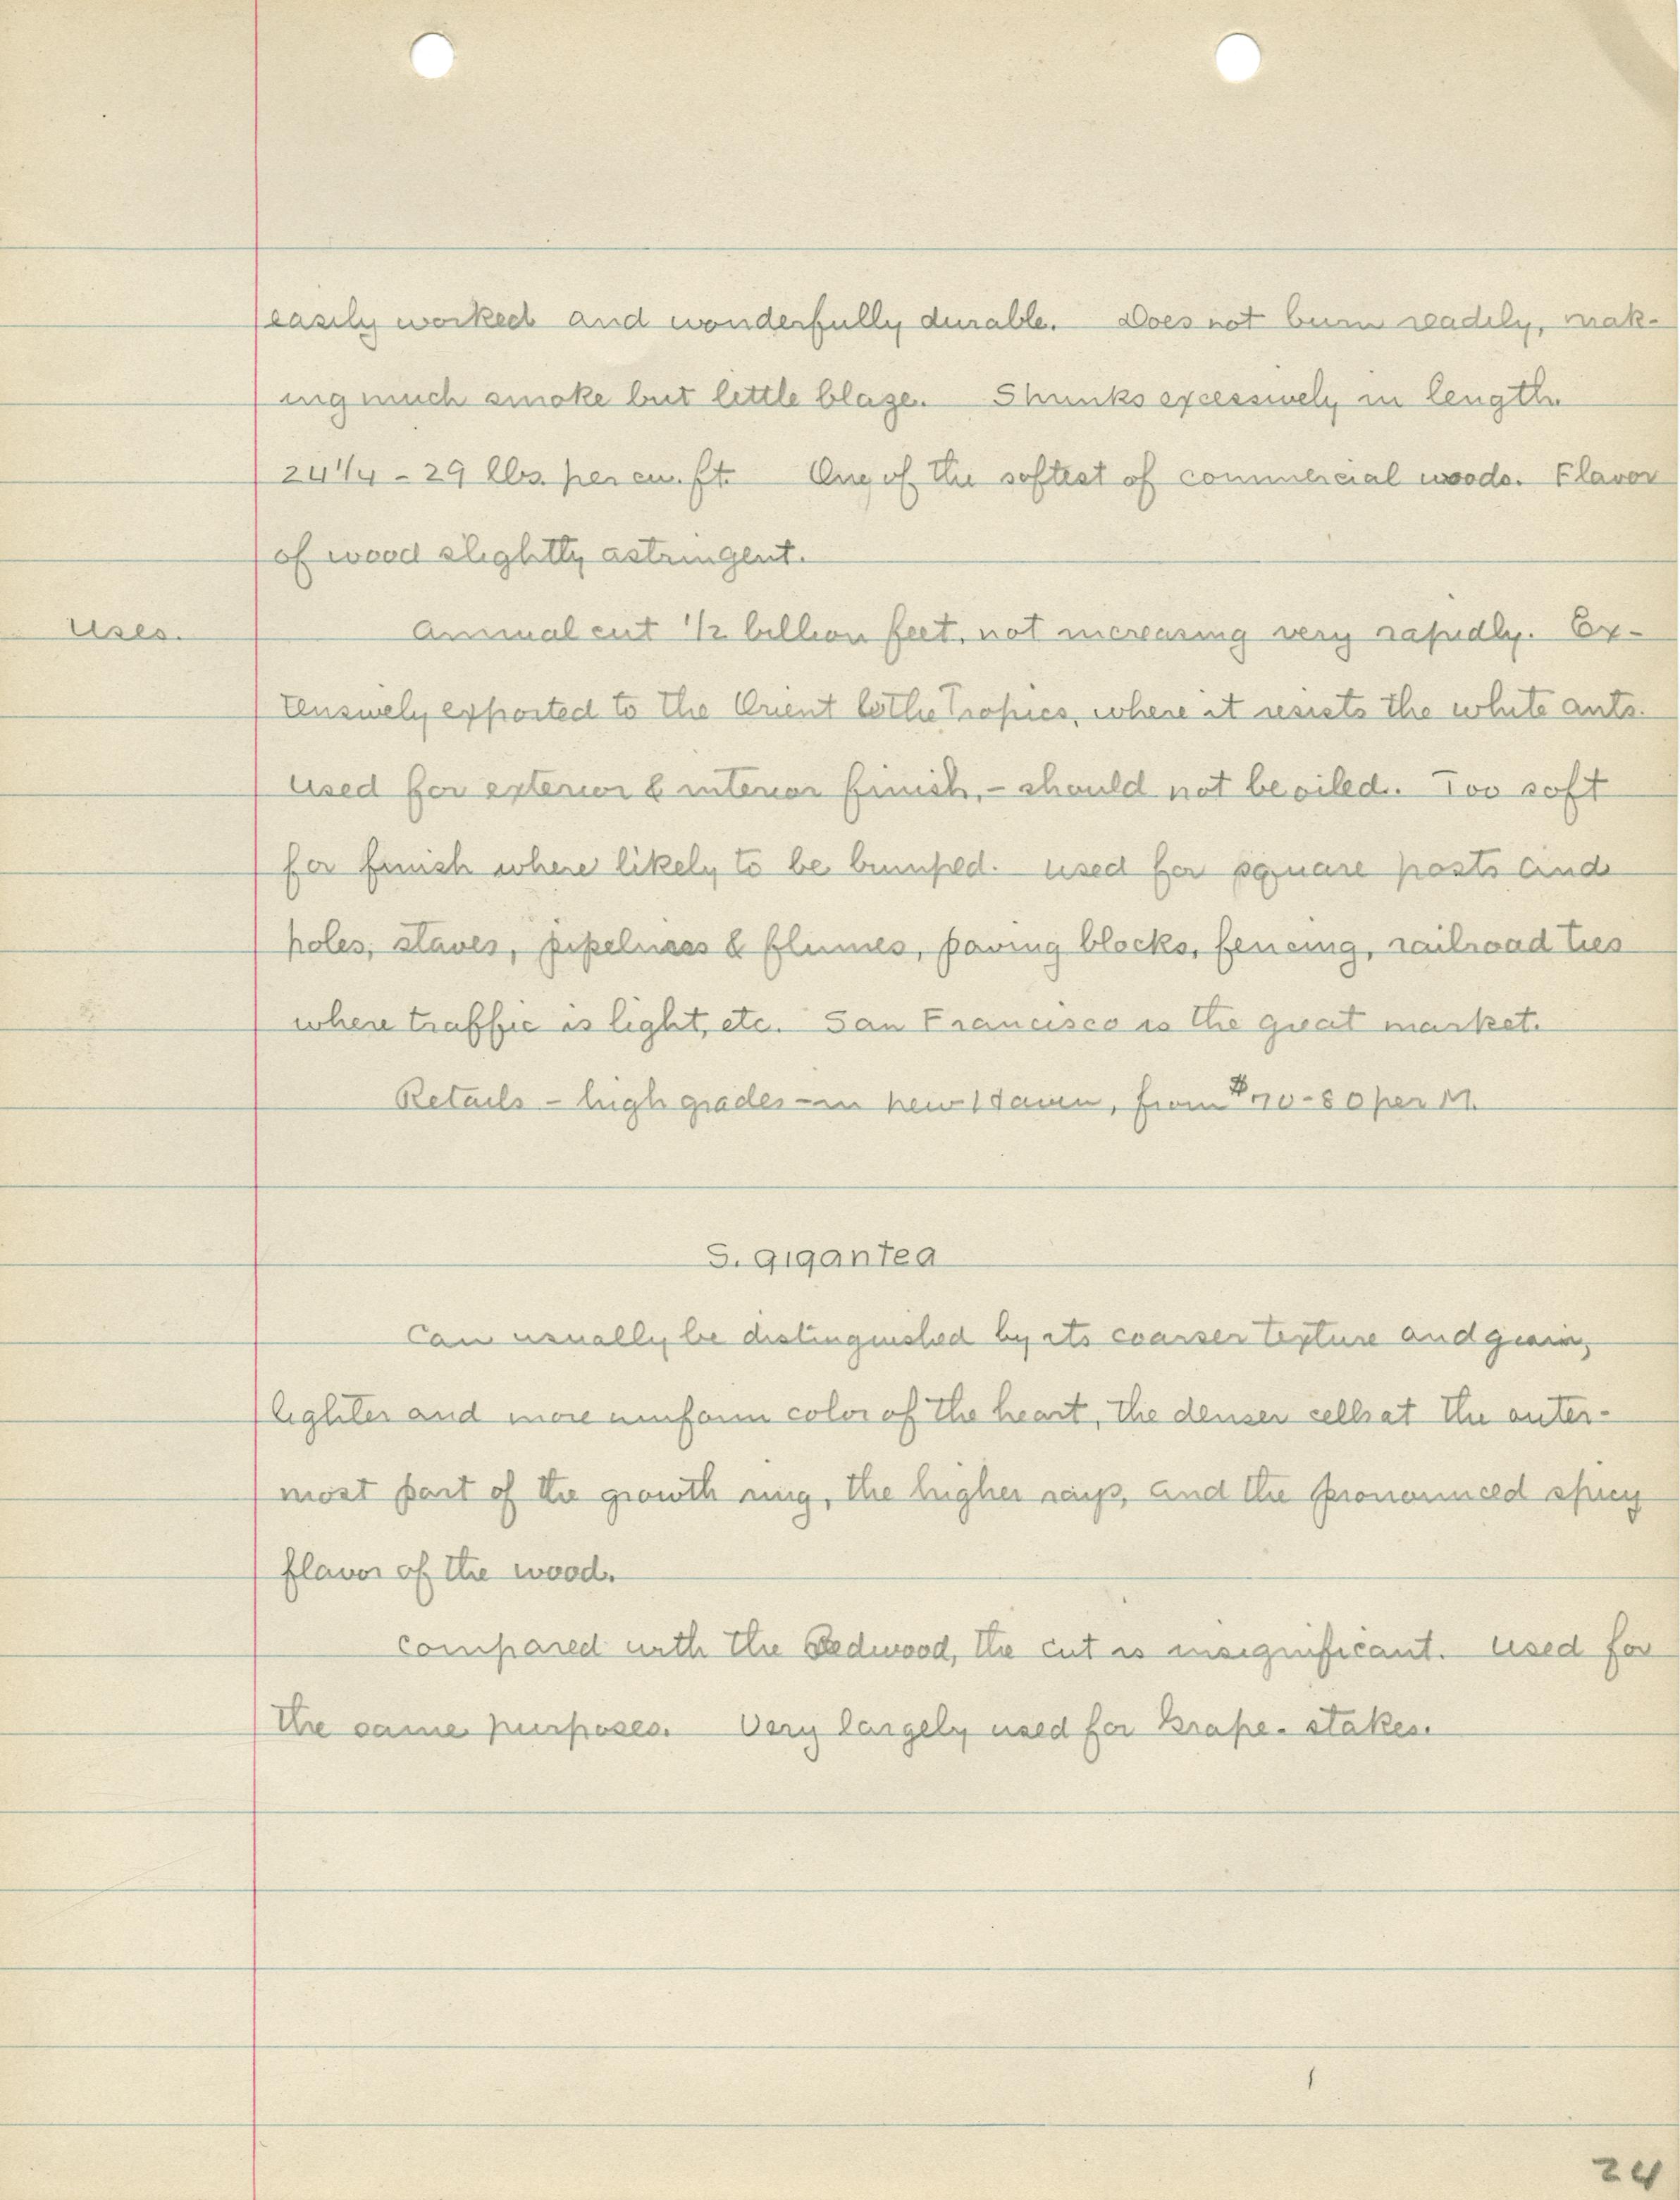 easily worked and wonderfully durable. Does not burn readily, mak-
ing much smoke but little blaze. Shrinks excessively in length.
24 1/4 - 29 lbs. per cu. ft. One of the softest of commercial woods. Flavor
of wood slightly astringent.
Uses. Annual cut 1/2 billion feet, not increasing very rapidly. Ex-
tensively exported to the Orient & the Tropics, where it resists the white ants.
Used for exterior & interior finish, - should not be oiled. Too soft
for finish where likely to be bumped. Used for square posts and
poles, staves, pipelines & flumes, paving blocks, fencing, railroad ties
where traffic is light, etc. San Francisco is the great market.
Retails - high grades - in New Haven, from $70-80 per M.
S. gigantea
Can usually be distinguished by its coarser texture and grain,
lighter and more uniform color of the heart, the denser cells at the outer-
most part of the growth ring, the higher rays, and the pronounced spicy
flavor of the wood.
Compared with the Redwood, the cut is insignificant. Used for
the same purposes. Very largely used for grape-stakes.
24